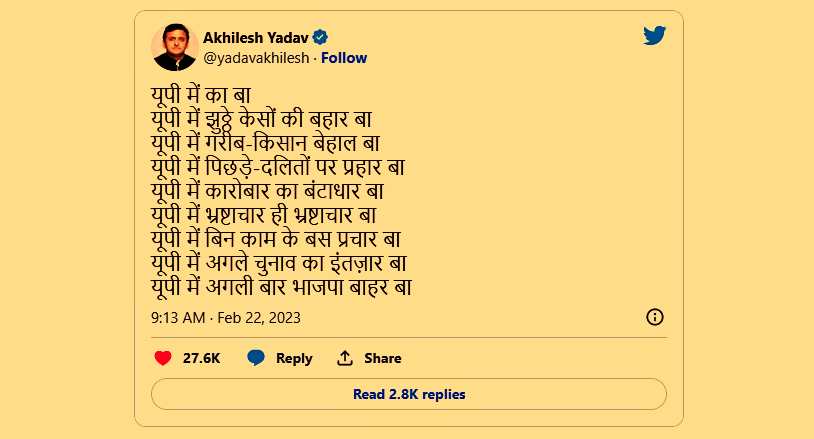 Akhilesh Yadav
@yadavakhilesh · Follow
यूपी में का बा
यूपी में झुठ्ठे केसों की बहार बा
यूपी में गरीब-किसान बेहाल बा
यूपी में पिछड़े-दलितों पर प्रहार बा
यूपी में कारोबार का बंटाधार बा
यूपी में भ्रष्टाचार ही भ्रष्टाचार बा
यूपी में बिन काम के बस प्रचार बा
यूपी में अगले चुनाव का इंतज़ार बा
यूपी में अगली बार भाजपा बाहर बा
9:13 AM · Feb 22, 2023
27.6K Reply Share
Read 2.8K replies